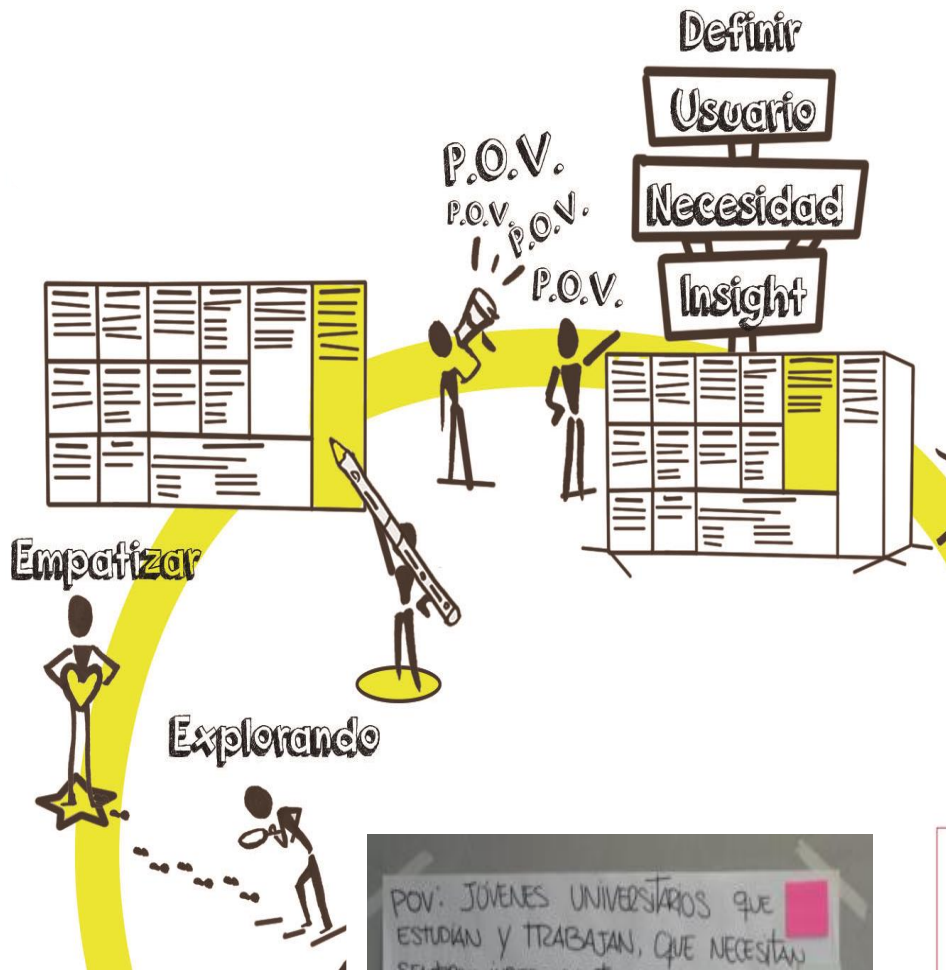 Definir
Usuario
Necesidad
Insight
P.O.V.
P.O.V.
P.O.V.
P.O.V.
Empatizar
Explorando
POV: JÓVENES UNIVERSITARIOS QUE
ESTUDIAN Y TRABAJAN, QUE NECESITAN